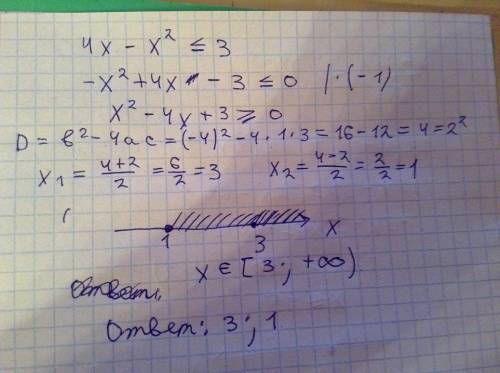 4x - x² ≤ 3
-x² + 4x - 3 ≤ 0 | · (-1)
x² - 4x + 3 ≥ 0
D = b² - 4ac = (-4)² - 4 · 1 · 3 = 16 - 12 = 4 = 2²
x₁ = (4+2)/2 = 6/2 = 3 x₂ = (4-2)/2 = 2/2 = 1
1 3 x
x ∈ [3; +∞)
Ответ: 3; 1